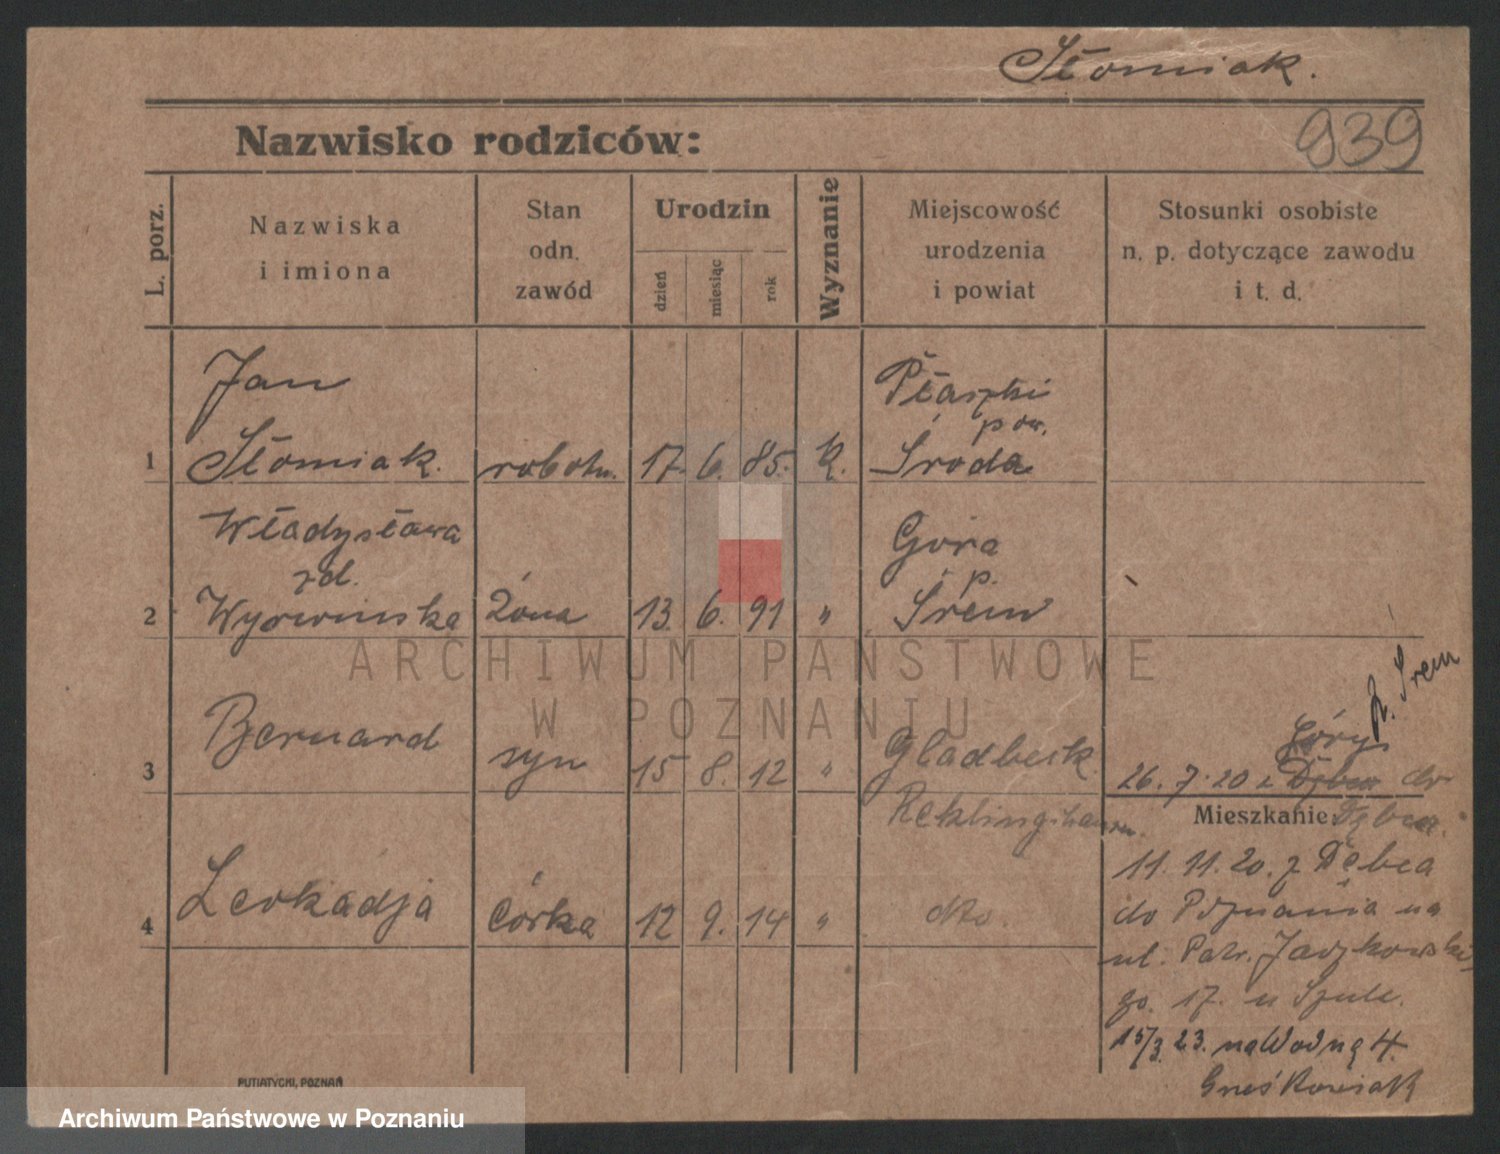 Słomiak.
939
Nazwisko rodziców:
L. porz.
Nazwiska
i imiona
Stan
odn.
zawód
Urodzin
dzień
miesiąc
rok
Wyznanie
Miejscowość
urodzenia
i powiat
Stosunki osobiste
n. p. dotyczące zawodu
i t. d.
Jan
Płaczki
pow.
1 Słomiak. robotn. 17. 6. 85. K. Środa
Władysława
zd.
Góra
p.
2 Żona 13. 6. 91 " Śrem
Bernard
3 syn 15 8. 12 " Gladbeck
Reklinghausen.
4 Leokadja Córka 12 9. 14 " dto.
p. Śrem
Góry
26. 7. 20 z Dębca do
Mieszkanie:
Dębca.
11. 11. 20. z Dębca
do Poznania na
ul. Patr. Jackowski
go. 17. u Szulc.
15/3. 23. na Wodną 4.
PUTIATYCKI, POZNAŃ
ARCHIWUM PAŃSTWOWE
W POZNANIU
Archiwum Państwowe w Poznaniu